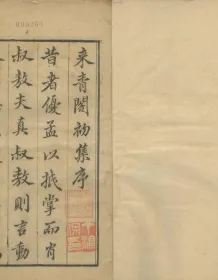 來青閣初集序
昔者優孟以抵掌而肖
叔敖夫真叔敖則言動